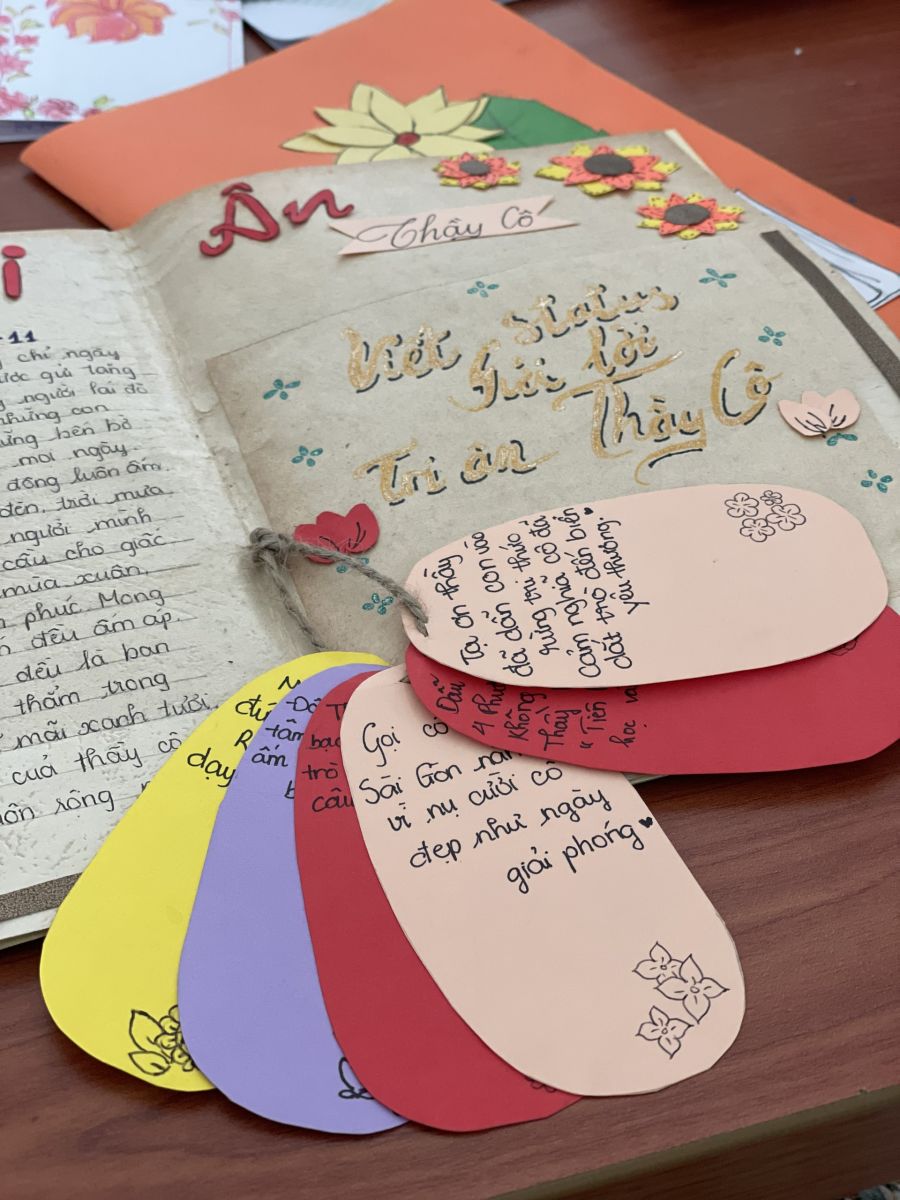 i
11
chỉ ngày
được gửi tặng
người lái đò
những con
bến bờ
mọi ngày
đông luôn ấm
đến, trời mưa
người mình
cầu cho giấc
mùa xuân.
phúc. Mong
đều ấm áp.
đều là ban
thắm trong
mãi xanh tươi.
của thầy cô
rộng
Ân
Thầy Cô
Viết Status
Gửi lời
Tri ân Thầy Cô
Tạ ơn thầy
đã dẫn con vào
rừng tri thức
cảm nghĩa cô đã
dắt trò đến biển
yêu thương.
Dẫu
4 phư
Không
Thầy
"Tiên
học
dạy
tâm
ấm
trò
câu
Gọi cô
Sài Gòn
vì nụ cười cô
đẹp như ngày
giải phóng